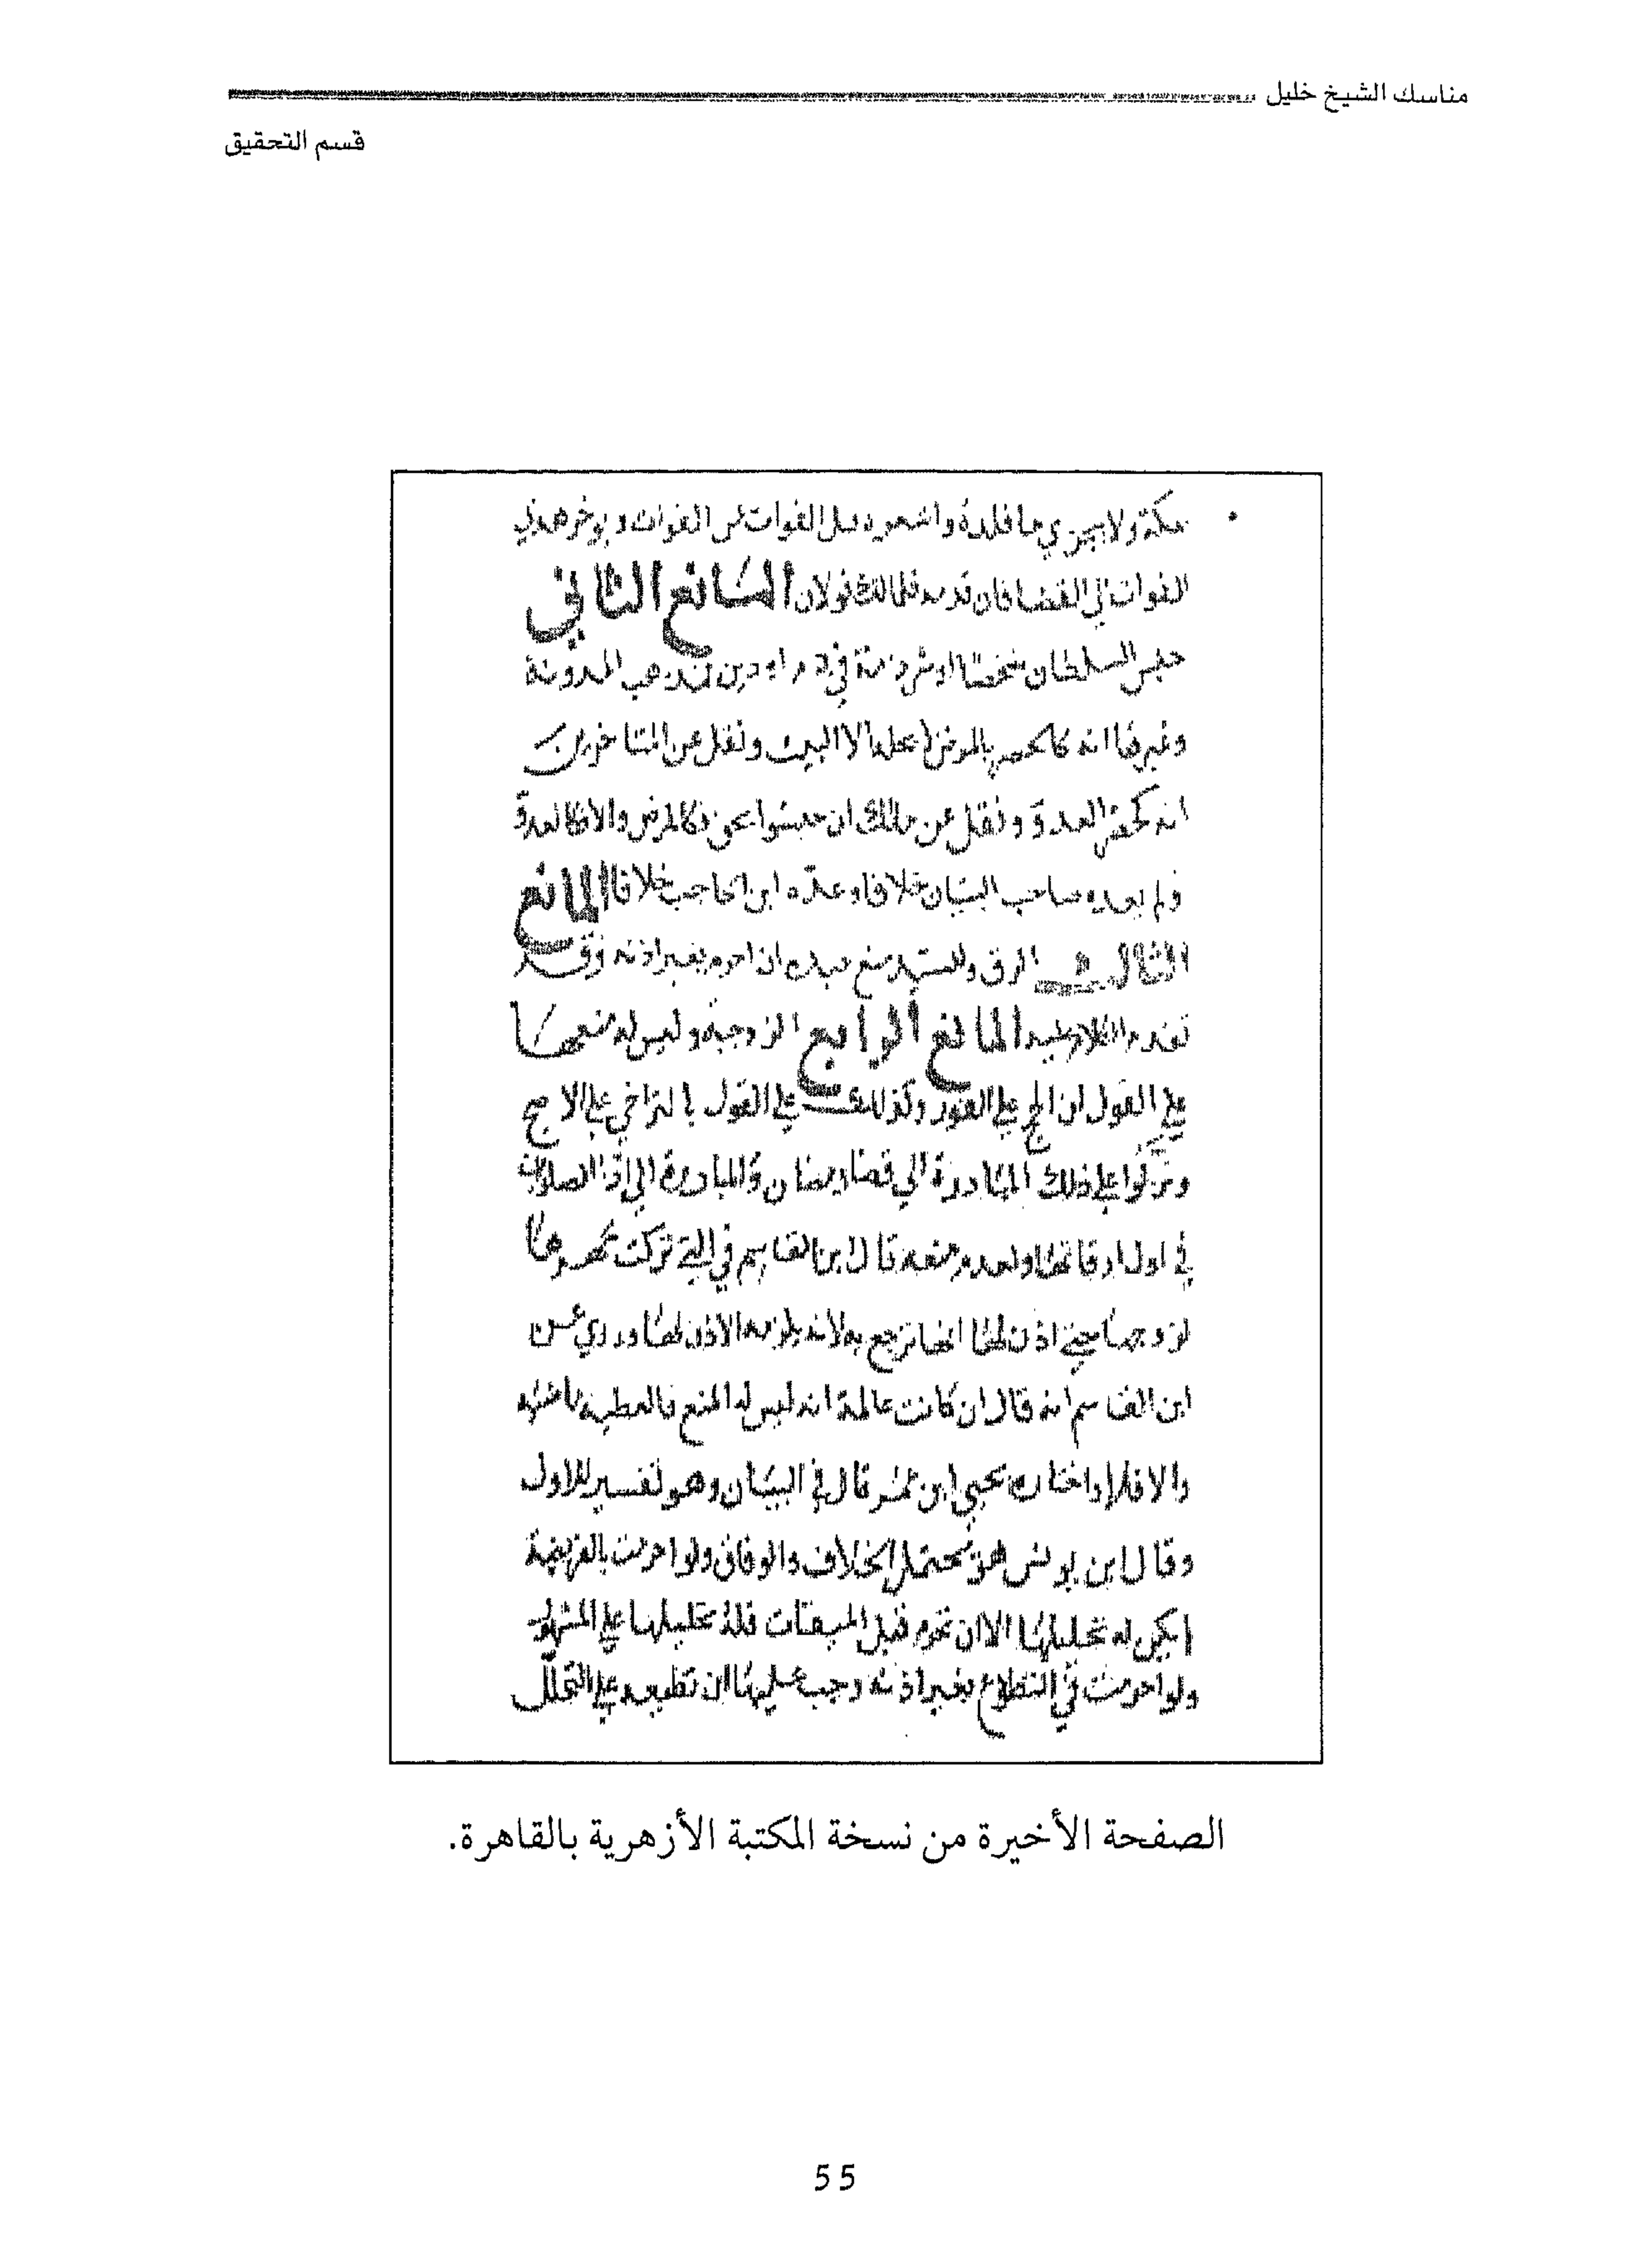 مناسك الشيخ خليل
قسم التحقيق
مكة ولا يجزي ما قلده واشعره قبل الفوات عن الفوات ويوخر هدي
الفوات الي القضا فان قدمه فلمالك قولان المانع الثاني
حبس السلطان شخصا او شرذمة في دم او دين فمذهب المدونة
وغيرها انه كالحصر بالمرض لا يحله الا البيت ونقل عن المتاخرين
انه كحصر العدو ونقل عن مالك ان حبسوا بحق فكالمرض والا فكالعدو
ولم يعده صاحب البيان خلافا وعده ابن الحاجب خلافا المانع
الثالث الرق وللسيد منع عبده ان احرم بغير اذنه وقد
تقدم الكلام عليه المانع الرابع الزوجية وليس له منعها
علي القول ان الحج علي الفور وكذلك علي القول بالتراخي علي الاصح
ونزلوا علي ذلك المبادرة الي قضا رمضان والمبادرة الي اذا الصلوات
في اول اوقاتها ولعدم منعه قال ابن القاسم في التي تركت مهرها
لزوجها حتي اذن لها انها ترجع به لانه يلزمه الاذن لها وروي عن
ابن القاسم انه قال ان كانت عالمة انه ليس له المنع فالعطية ماضية
والا فلا واختاره يحيي ابن عمر قال في البيان وهو تفسير للاول
وقال ابن يونس هو محتمل الخلاف والوفاق ولو احرمت بالفريضة
لم يكن له تحليلها الا ان تحرم قبل الميقات فله تحليلها علي المشهور
ولو احرمت في التطوع بغير اذنه وجب عليها ان تطيعه علي التحلل
الصفحة الأخيرة من نسخة المكتبة الأزهرية بالقاهرة.
55